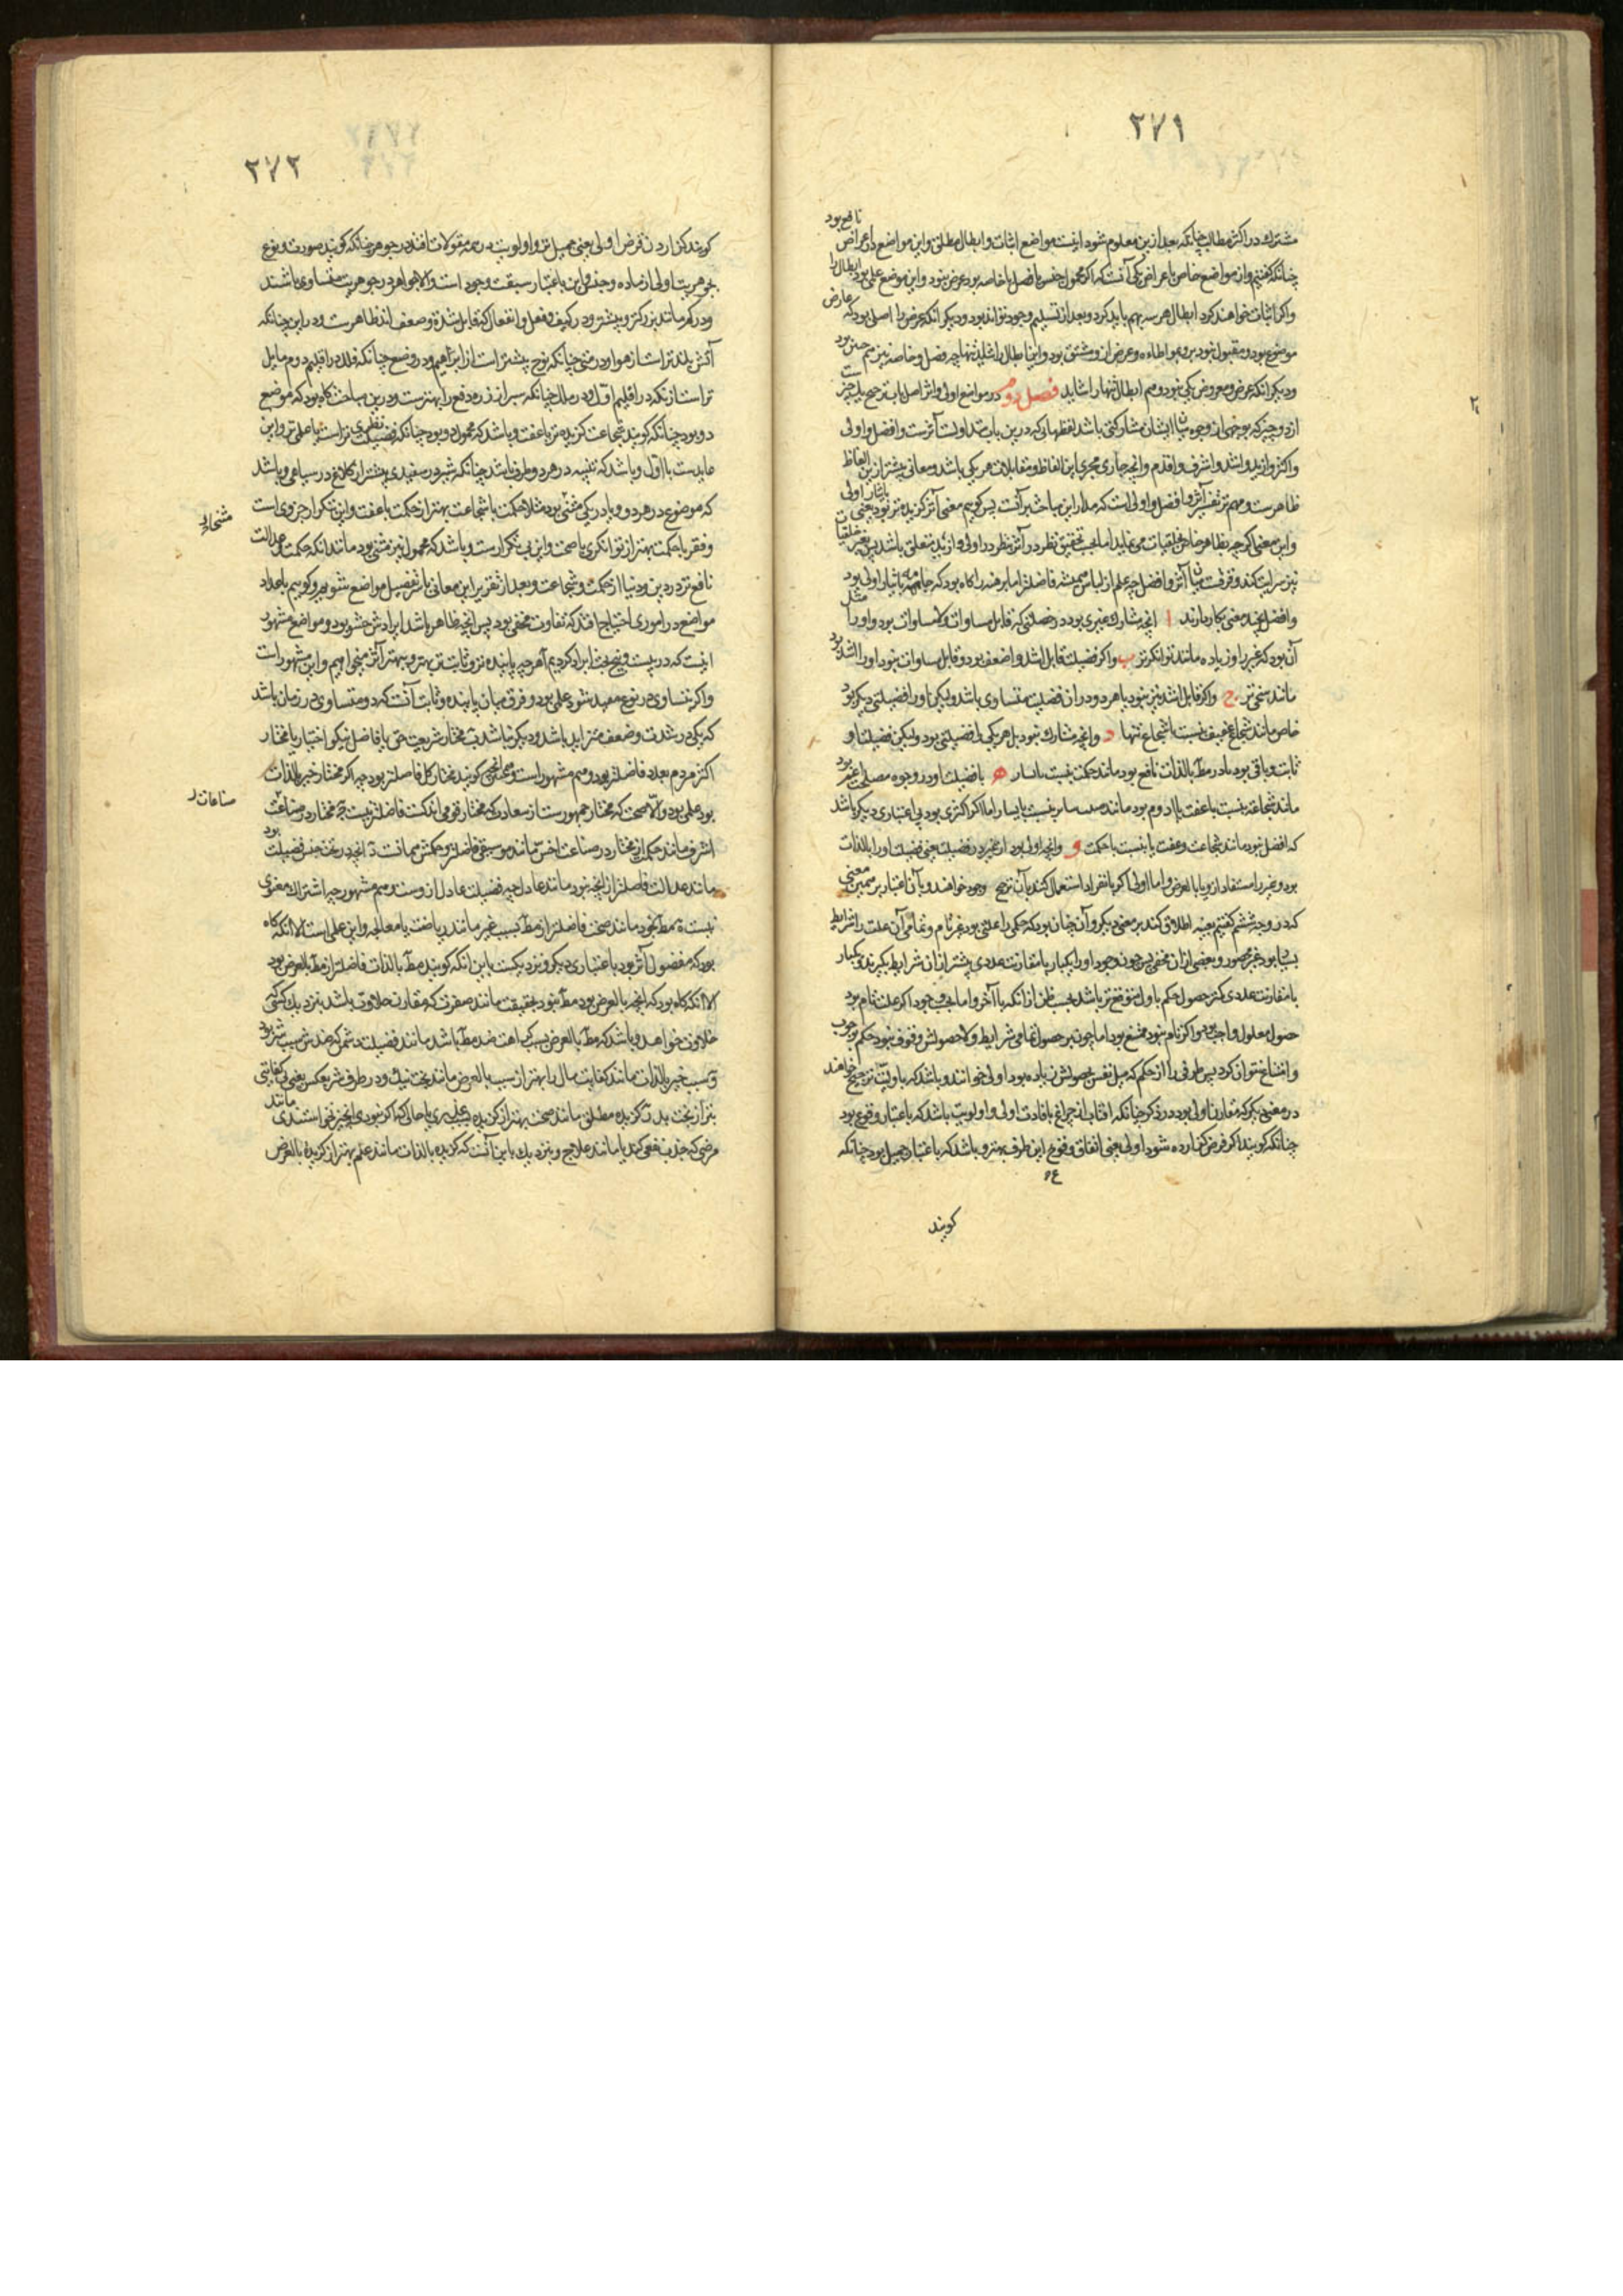 ٢٧١
نافع بود
مشترک در اکثر مطالب چنانکه بعد ازین معلوم شود اینست مواضع اثبات و ابطال مطلق و این مواضع در اعراض
چنانکه گفتیم و از مواضع خاص باعراض یکی آنست که اگر محمول جنس یا فصل یا خاصه بود عرض نبود و این موضع علمی بود ابطال را
واکر اثبات خواهند کرد ابطال هر سه بهم باید کرد و بعد از تسلیم وجود تواند بود و دیگر آنکه عرض را اصلی بود که عارض
موضوع بود و مقبول نبود برو بمواطاه و عرض ازو مشتق بود و این ابطال را شاید تنها چه فصل و خاصه نیز هم چنین بود
و دیگر آنکه عرض و معروض یکی نبود و هم ابطال تنها را شاید فصل دوم در مواضع اولی و اثر اصل باب ترجیح یک چیز است
از دو چیز که بوجهی از وجوه میان ایشان مشارکتی باشد لفظهائی که درین باب متداولست آثرست و افضل و اولی
واکثر و ازید و اشد و اشرف و اقدم و آنچه جاری مجری این الفاظ و مقابلات هر یکی باشد و معانی بیشتر ازین الفاظ
ظاهرست و مهم تر تفسیر آثر و افضل و اولی است که مدار این مباحث برآنست پس گوییم معنی آثر گزیده تر بود یعنی بایثار اولی
و این معنی اگرچه بظاهر خاص بخلقیات می نماید اما بحسب تحقیق نظر در آثر نظر در اولی و ازید متعلق باشد پس بغیر خلقیات
نیز سرایت کند و فرقست میان آثر و افضل چه علم از لباس همیشه فاضلتر اما برهنه را گاه بود که جامه بایثار اولی بود
و افضل بچند معنی بکار دارند ا آنچه مشارک غیری بود در خصلتی که قابل مساوات و لامساوات بود و او را مثل
آن بود که غیر را و زیاده مانند توانگرتر ب واکر فضیلت قابل اشد و اضعف بود و قابل مساوات نبود او را اشد بود
مانند سخی تر ج واکر قابل اشد نیز نبود یا هر دو در آن فضیلت متساوی باشد ولیکن او را فضیلتی دیگر بود
خاص مانند شجاع عفیف نسبت با شجاع تنها د و آنچه مشارک نبود بل هر یکی را فضیلتی بود ولیکن فضیلت او
ثابت و باقی بود یا در مطلوب بالذات نافع بود مانند حکمت نسبت با یسار ه یا فضیلت او در وجوه مصلحت غیر بود
مانند شجاعت نسبت با عفت یا ادوم بود مانند نسبت با یسار اما اگر اکثری بود بی اعتباری دیگر باشد
که افضل نبود مانند شجاعت و عفت یا نسبت با حکمت و و آنچه اولی بود از غیر در فضیلت یعنی فضیلت او را بالذات
بود و غیر را مستفاد ازو یا بالعرض و اما اولی اگر بانفراد استعمال کنند بآن ترجیح وجود خواهند و بآن اعتبار بر همین معنی
که در وجه ششم گفتیم بعینه اطلاق کنند بر معنی دیگر و آن چنان بود که حکمی را علتی بود غیر تام و تمامی آن علت را شرایط
بسیار بود غیر محصور و بعضی از آن مخفی پس چون وجود او را یکبار با مقارنت عددی بیشتر از آن شرایط بگیرند و یکبار
با مقارنت عددی کمتر حصول حکم با اول متوقع تر باشد بحسب ظن از آنکه با آخر و اما بحسب وجود اگر علت تام بود
حصول معلول واجب بود و اگر تام نبود ممتنع بود اما چون بر حصول تمامی شرایط و لاحصولش وقوف نبود حکم بوجوب
و امتناع نتوان کرد پس طرفی را از حکم که میل نفس بحصولش زیاده بود اولی خوانند و باشد که باولیت ترجیح خواهند
در معنی دیگر که مقارن اولی بود در ذکر چنانکه آفتاب از چراغ بافادت اولی و اولویت باشد که باعتبار وقوع بود
چنانکه گویند اگر فرض گزارده شود اولی یعنی اتفاق وقوع این طرف بهتر و باشد که باعتبار جمیل بود چنانکه
گویند
٢٧٢
گویند گزاردن فرض اولی یعنی جمیل تر و اولویت در همه مقولات افتد در جوهر چنانکه گویند صورت و نوع
بجوهریت اولی از ماده و جنس و این باعتبار سبقت وجود است و الا جواهر در جوهریت متساوی باشند
و در کم مانند بزرگتر و بیشتر و در کیف و فعل و انفعال که قابل شدت و ضعف اند ظاهرست و در این چنانکه
آتش بلندتر است از هوا و در متی چنانکه نوح پیشتر است از ابراهیم و در وضع چنانکه فلک در اقلیم دوم مایل
تر است از آنکه در اقلیم اول و در ملک چنانکه سپر از زره دفع را بهترست و درین مباحث گاه بود که موضوع
دو بود چنانکه گویند شجاعت گزیده تر یا عفت و باشد که محمول دو بود چنانکه فضیلت نظری تر است یا عملی تر و این
عایدست با اول و باشد که تثنیه در هر دو طرف باشد چنانکه شیر در سفیدی بیشتر از کلاغ در سیاهی و باشد
که موضوع در هر دو و یا در یکی مثنی بود مثلا حکمت با شجاعت بهتر از حکمت با عفت و این تکرار جزوی است
و فقر با حکمت بهتر از توانگری با صحت و این بی تکرارست و باشد که محمول نیز مثنی بود مانند آنکه حکمت و عدالت
نافع تر در دین و دنیا از حکمت و شجاعت و بعد از تقریر این معانی با تفصیل مواضع شویم و گوییم باعداد
مواضع در اموری احتیاج افتد که تفاوت مخفی بود پس آنچه ظاهر باشد ایرادش حشو بود و مواضع مشهور
اینست که در بیست و پنج بحث ایراد کردیم آ هرچه پاینده تر و ثابت تر بهتر و بهتر آثر میخواهیم و این مشهور است
واکر بتساوی در نوع مقید شود علمی بود و فرق میان پاینده و ثابت آنست که دو متساوی در زمان باشد
که یکی در شدت و ضعف متزاید باشد و دیگر نباشد ب مختار شریعت حق یا فاضل نیکو اختیار یا مختار
اکثر مردم بعدد فاضلتر بود و هم مشهور است و گویند مختار کل فاضلتر بود چه اگر مختار خیر بالذات
بود علمی بود و الا صحت که مختار جمهورست از سعادت که مختار قومی اندکست فاضلتر نیست ج مختار در صناعت
اشرف مانند حکمت از مختار در صناعت اخس مانند موسیقی فاضلتر و حکمش همانست د آنچه در تحت جنس فضیلت بود
مانند عدالت فاضلتر از آنچه نبود مانند عادل چه فضیلت عادل ازوست و هم مشهور چه اشتراک معنوی
نیست ه مطلوب بخود مانند صحت فاضلتر از مطلوب بسبب غیر مانند ریاضت یا معالجه و این علمی است الا آنکه گاه
بود که مفضول آثر بود باعتباری دیگر و نزدیکست باین آنکه گویند مطلوب بالذات فاضلتر از مطلوب بالعرض بود
الا آنکه گاه بود که آنچه بالعرض بود مطلوب نبود بحقیقت مانند صفرت که مقارن حلاوت باشد بنزدیک کسی که
حلاوت خواهد و باشد که مطلوب بالعرض بسبب کراهت ضد مطلوب باشد مانند فضیلت دشمن که ضدش سبب شر بود
و سبب خیر بالذات مانند کفایت مال را بهتر از سبب بالعرض مانند بخت نیک و در طرف شر بعکس یعنی بی کفایتی
بتر از بخت بد ز گزیده مطلق مانند صحت بهتر از گزیده بحسب امری یا حالی که اگر نبودی آنچیز نخواستندی مانند
مرضی که جذب نفعی کند یا مانند علاج و نزدیک باین آنست که گزیده بالذات مانند علم بهتر از گزیده بالعرض
صناعات